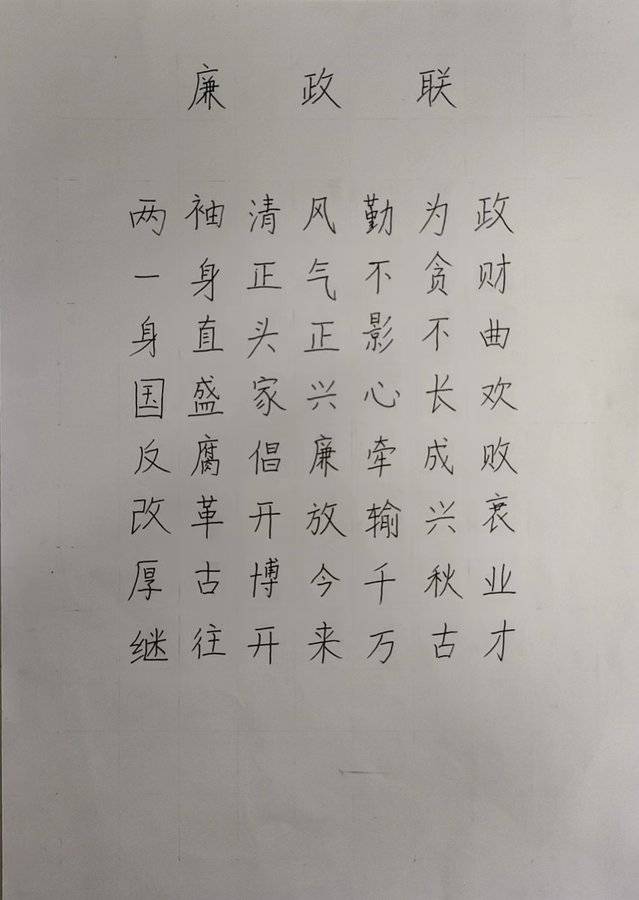 廉政联
两袖清风勤为政
一身正气不贪财
身直头正影不曲
国盛家兴心长欢
反腐倡廉牵成败
改革开放输兴衰
厚古博今千秋业
继往开来万古才